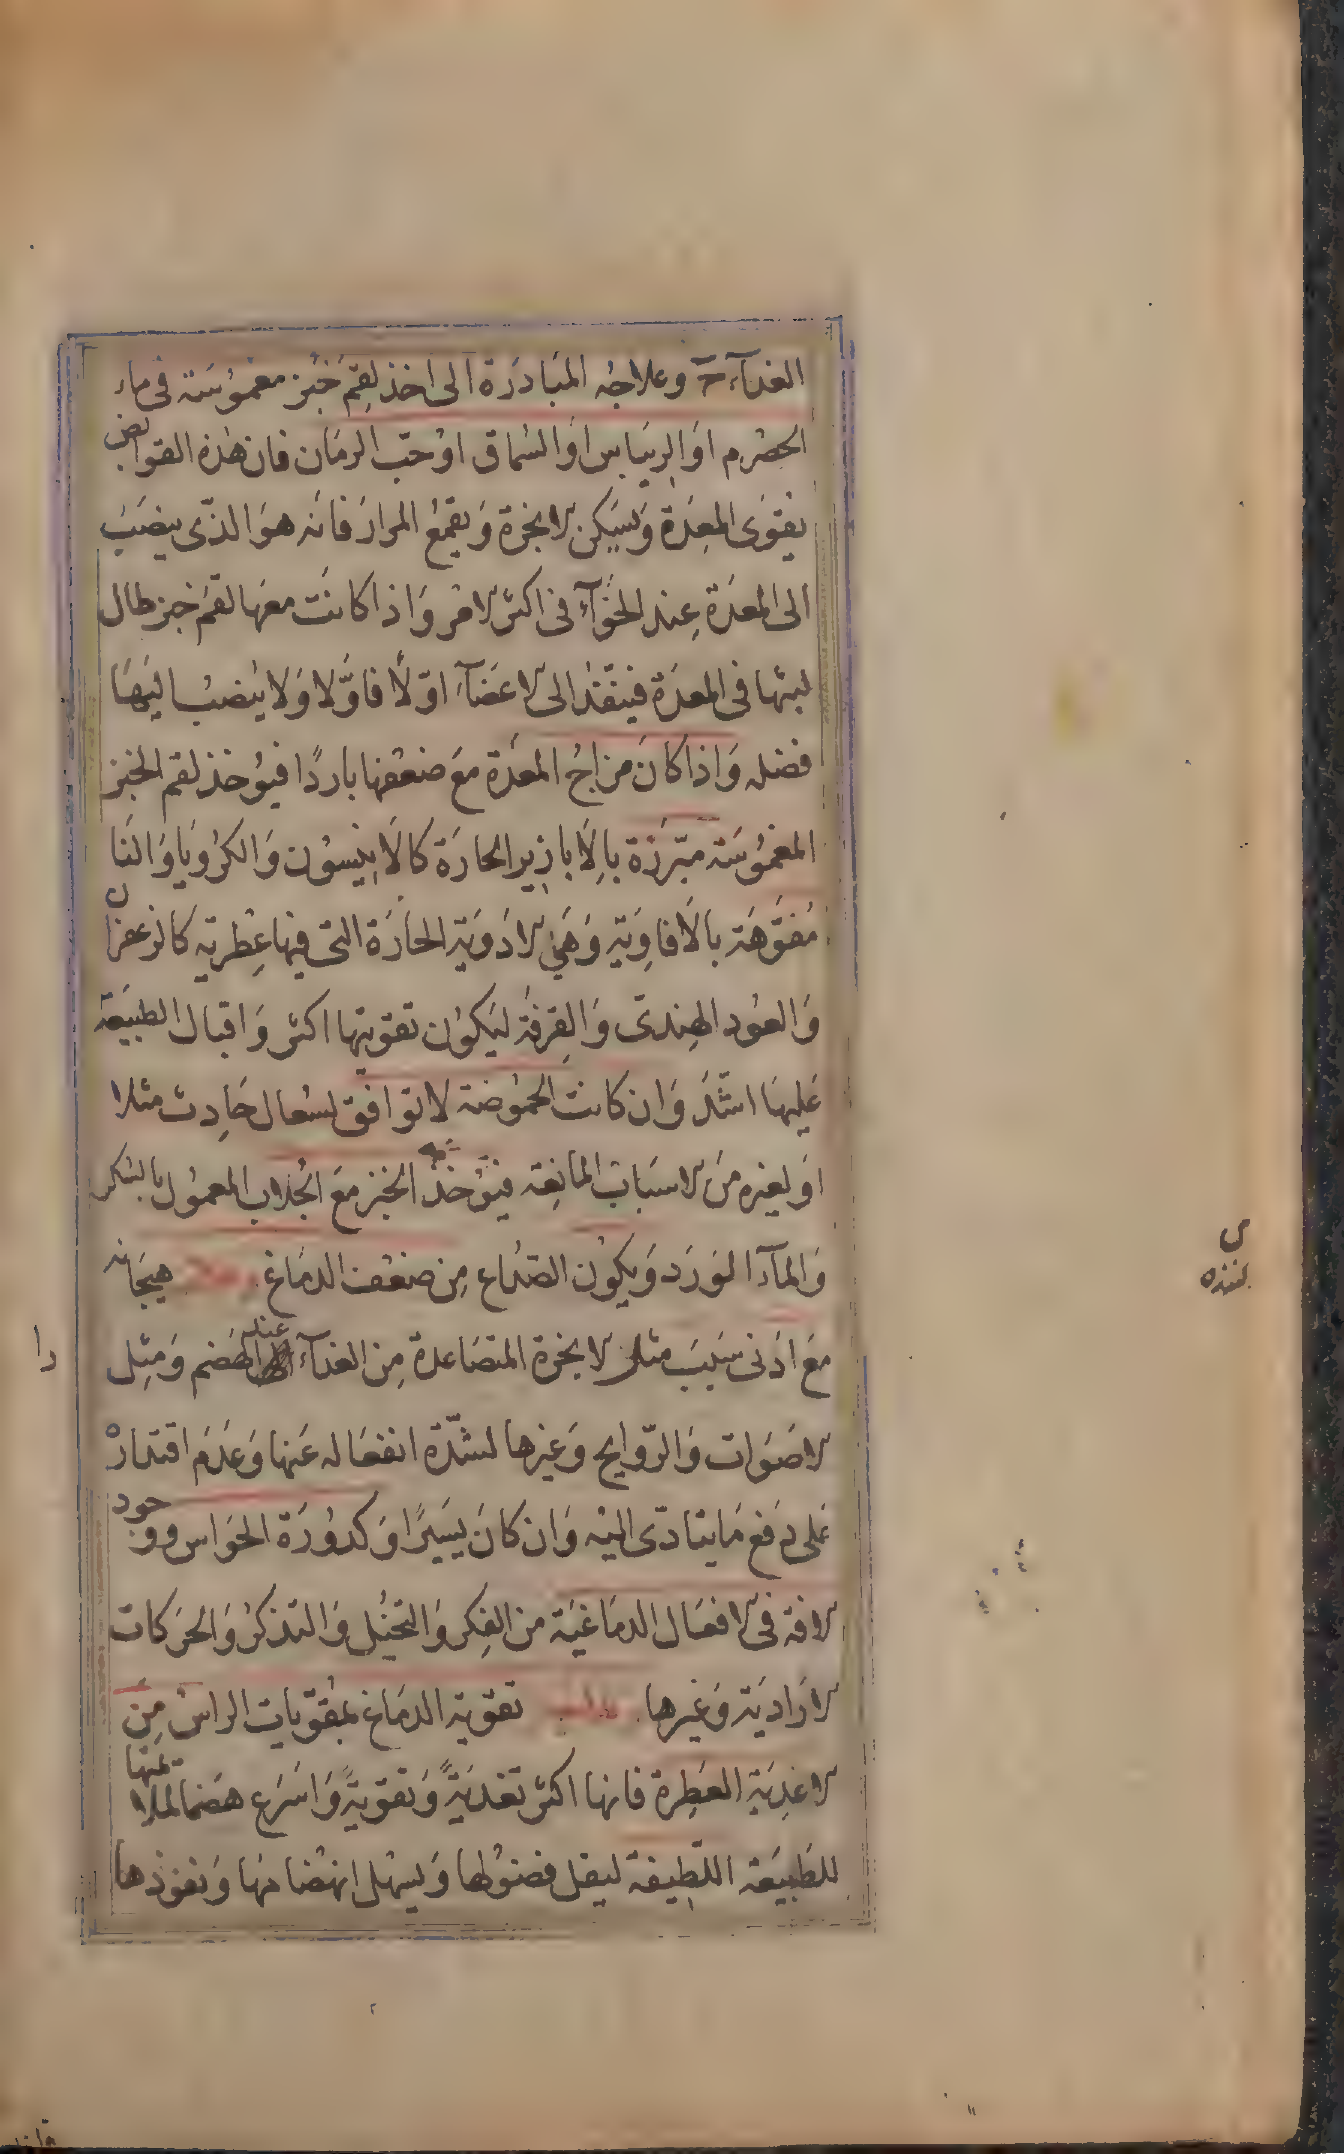 الغذآء ح وعلاجه المبَادرَة الى اخذ لقَم خُبز مغموُسَة فى ماء
الحصرم اوَ الريبَاس اوَ السُماق اوْ حبّ الرمَان فان هٰذه القوابض
يقوَى المعِدَة وَيسَكن الابخرَة وَيقمعُ المرارَ فانَه هوَ الذّى ينصَبّ
الى المعدَة عِند الخوَآء فى اكثر الامر وَاذا كانت معَها لقَم خبز طال
لبثها فى المعدَة فينفذ الى الاعضَآء اوّلًا فاوَّلا وَلا ينصبُ اليهَا
فضله وَاذا كانَ مزاجُ المعدَة معَ ضعْفها باردًا فيُوخذ لقم الخبز
المغموُسَة مبَرزة بالِاَبازير الحارَة كالَانيسوُن وَالكرُويَا وَالنَا
مُفوَّهَة بالَافاوِيَة وَهَى الادَويَة الحارَة التى فيها عِطريه كالزعفران
وَالعوُد الهندى وَالقِرفَة ليَكوُن تقويتها اكثر وَاقبال الطبيعَة
عَليهَا اشدّ وَان كانت الحموُضة لا توافق لسُعال حَادِث مثلا
اوَ لغيره مِنَ الاسبَاب المانِعَة فيُوخذ الخبز معَ الجُلاب المعموُل بالسُكر
وَالمآء الوَرَد وَيكوُن الصُداع مِن ضعْف الدمَاغ هيجَانه
معَ ادَنى سَبب مثل الابخرَة المتصَاعدة مِن الغذآء عند الهَضم وَمثِل
الاصَوَات وَالرّوايح وَغيرها لشدّة انفعَاله عَنها وَعَدَم اقتدارهْ
عَلى دفع مَا يتادّى اليْه وَان كانَ يسَيرًا وَكدوُرَة الحوَاس ووجود
الافة فى الافعَال الدمَاغيَة من الفِكر وَالتخيُل وَالتذكرُ وَالحرَكات
الارَاديَة وَغيرها تقويَة الدمَاغ بمقوّيات الراسْ مِنَ
الاغذِيَة العَطِرة فانها اكثر تغذيَةً وَتقويَةً وَاسَرع هضما لملايمتها
للطَبيعَة اللّطِيفة ليقل فضوُلها وَليسَهل انهضامهَا وَنفوذها